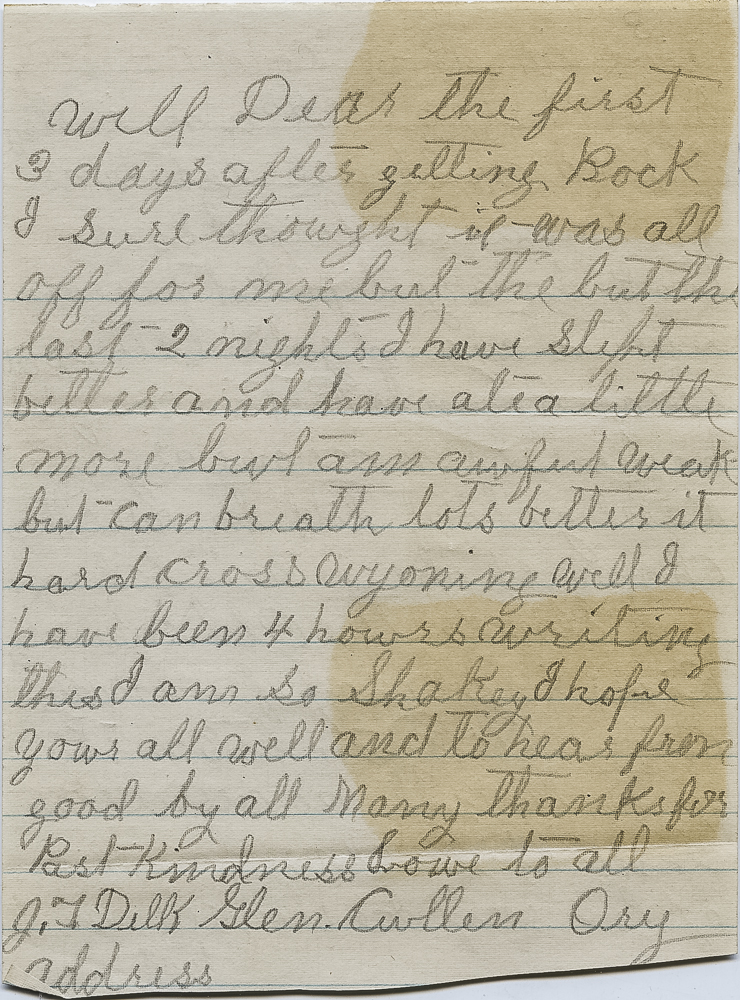 Well Dear the first
3 days after getting Rock
I sure thought it was all
off for me but the but the
last 2 nights I have slept
better and have ate a little
more but am awful weak
but can breath lots better it
hard cross Wyoming well I
have been 4 howrs writing
this I am so Shakey I hope
yours all well and to hear from
good by all Many thanks for
Past Kindness Love to all
J.T Delk Glen. Cullen Ory
address